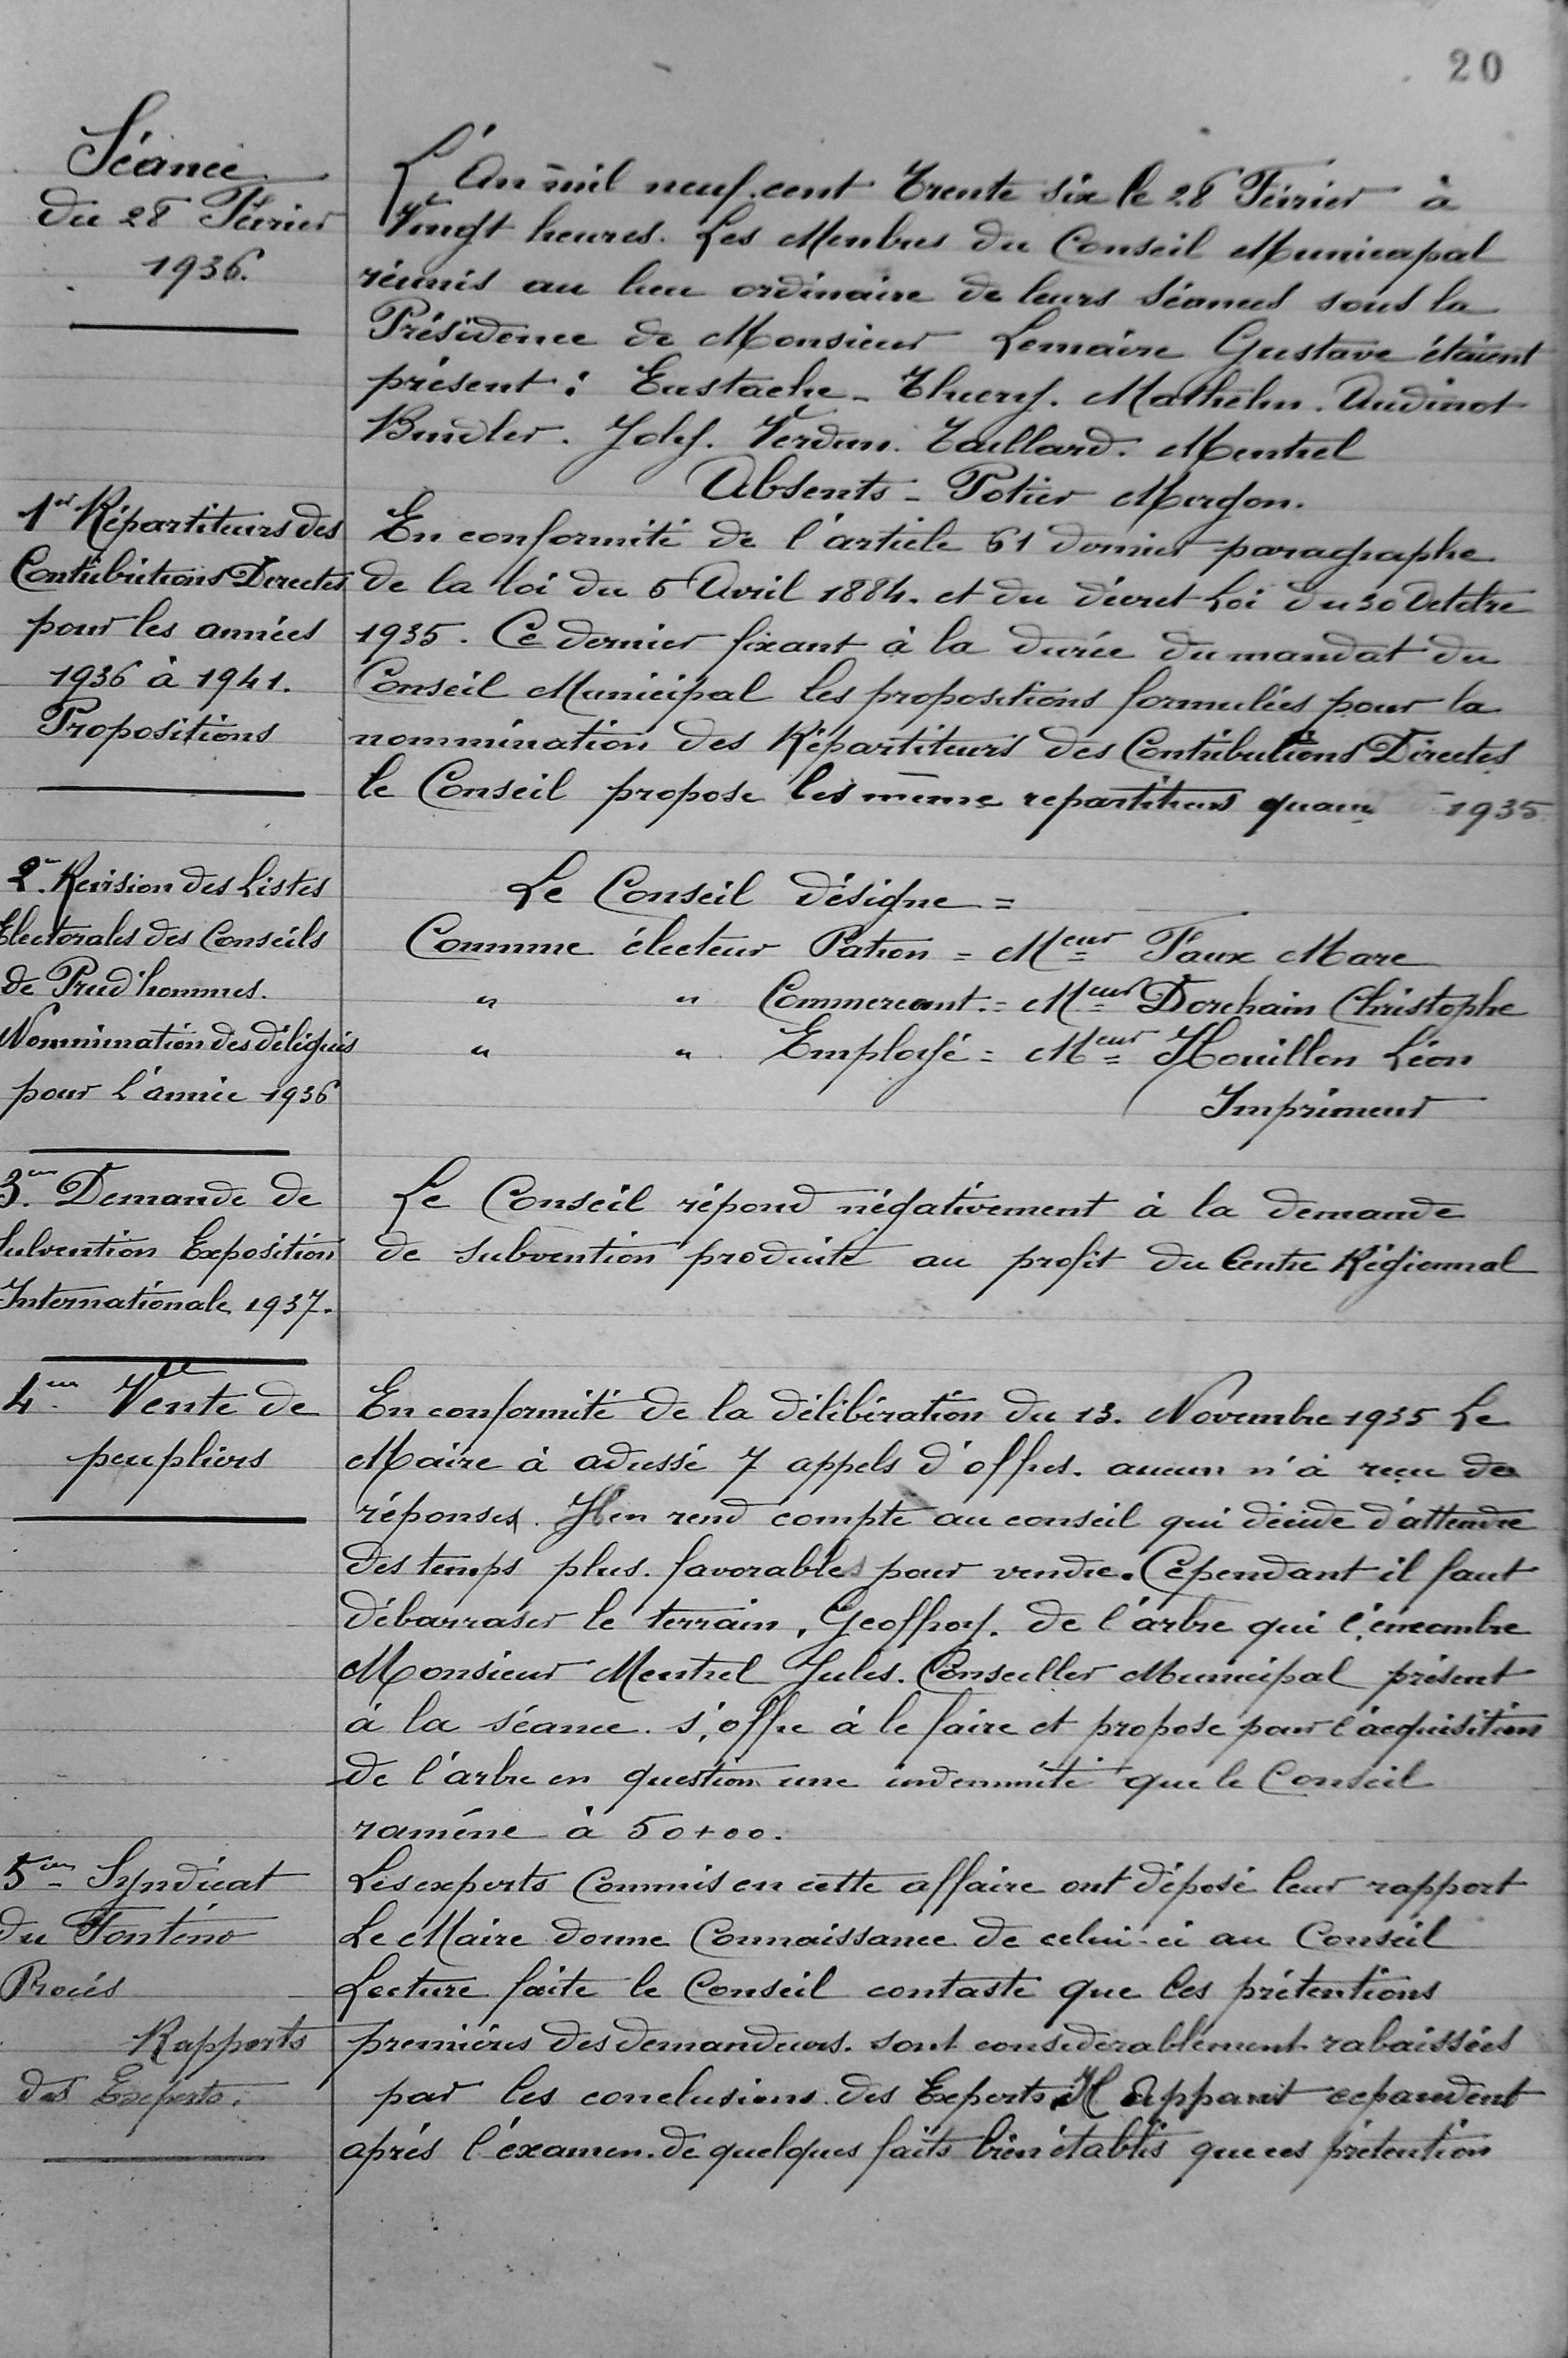 20
Séance
du 28 Février
1936.
L'An mil neuf cent Trente Six le 28 Février à
Vingt heures. Les Membres du Conseil Municapal
réunis au lieu ordinaire de leurs Séances sous la
Présidence de Monsieur Lemaire Gustave étaient
présent : Eustache - Thiery. Mathelin. Audinot
Bindler. Joly. Verdun. Taillard. Mentrel
Absents - Potier
1er Répartiteurs des
Contributions Directes
pour les années
1936 à 1941.
Propositions
En conformité de l'article 61 dernier paragraphe
de la loi du 5 Avril 1884. et du décret Loi du 30 Octobre
1935. Ce dernier fixant à la durée du mandat du
Conseil Municipal les propositions formulées pour la
nommination des Répartiteurs des Contributions Directes
le Conseil propose les même repartiteurs 1935
2. Revision des Listes
Electorales des Conseils
de Prud'hommes.
Nommination des délégués
pour l'année 1936
Le Conseil désigne =
Comme électeur Patron = Meur Faux Marc
" " Commercant. = Meur Dorchain Christophe
" " Employé = Meur Houillon Léon
Imprimeur
3. Demande de
Subvention Exposition
Internationale 1937.
Le Conseil répond négativement à la demande
de subvention produite au profit du Centre Régionnal
4. Vente de
peupliers
En conformité de la délibération du 13. Novembre 1935 Le
Maire à adressé 7 appels d'offres. aucun n'à reçu de
réponses. Il en rend compte au conseil qui décide d'attendre
des temps plus. favorables pour vendre. Cependant il faut
débarraser le terrain, Geoffroy. de l'arbre qui l'encombre
Monsieur Mentrel Jules. Conseiller Municipal présent
à la séance. s'offre à le faire et propose pour l'acquisition
de l'arbre en question une indemnité que le Conseil
raméne à 50+00.
5. Syndicat
du Fonténo
Procés
Rapports
des Experts.
Les experts Commis en cette affaire ont déposé leur rapport
Le Maire donne Connaissance de celui-ci au Conseil
Lecture faite le Conseil contaste que les prétentions
premières des demandeurs. sont considerablement rabaissées
par les conclusions des Experts. Il apparait cepandent
aprés l'éxamen. de quelques faits bien établis que ces prétention